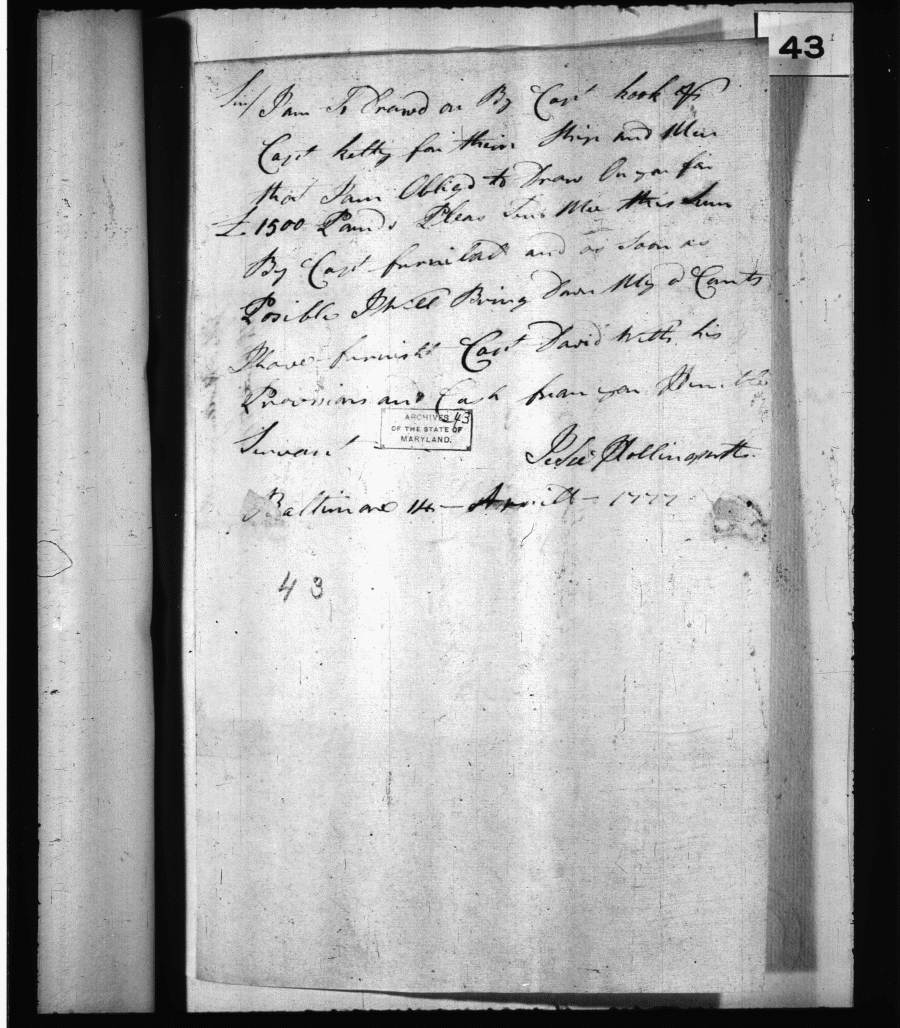 43
Sir/ I am So Drawd on By Capt hook &
Capt kelty for their Ships and Men
that I am Obligd to Draw On you for
£ 1500 Pounds Pleas Send Me this Sum
By Capt furnival and as Soon as
Posible I Will Bring down My a Counts
I have furnisht Capt David With his
Provisions and Cash from your Humble
Servant
ARCHIVES 43
OF THE STATE OF
MARYLAND.
Jesse Hollingsworth
Baltimore 14 — Aprill — 1777
43